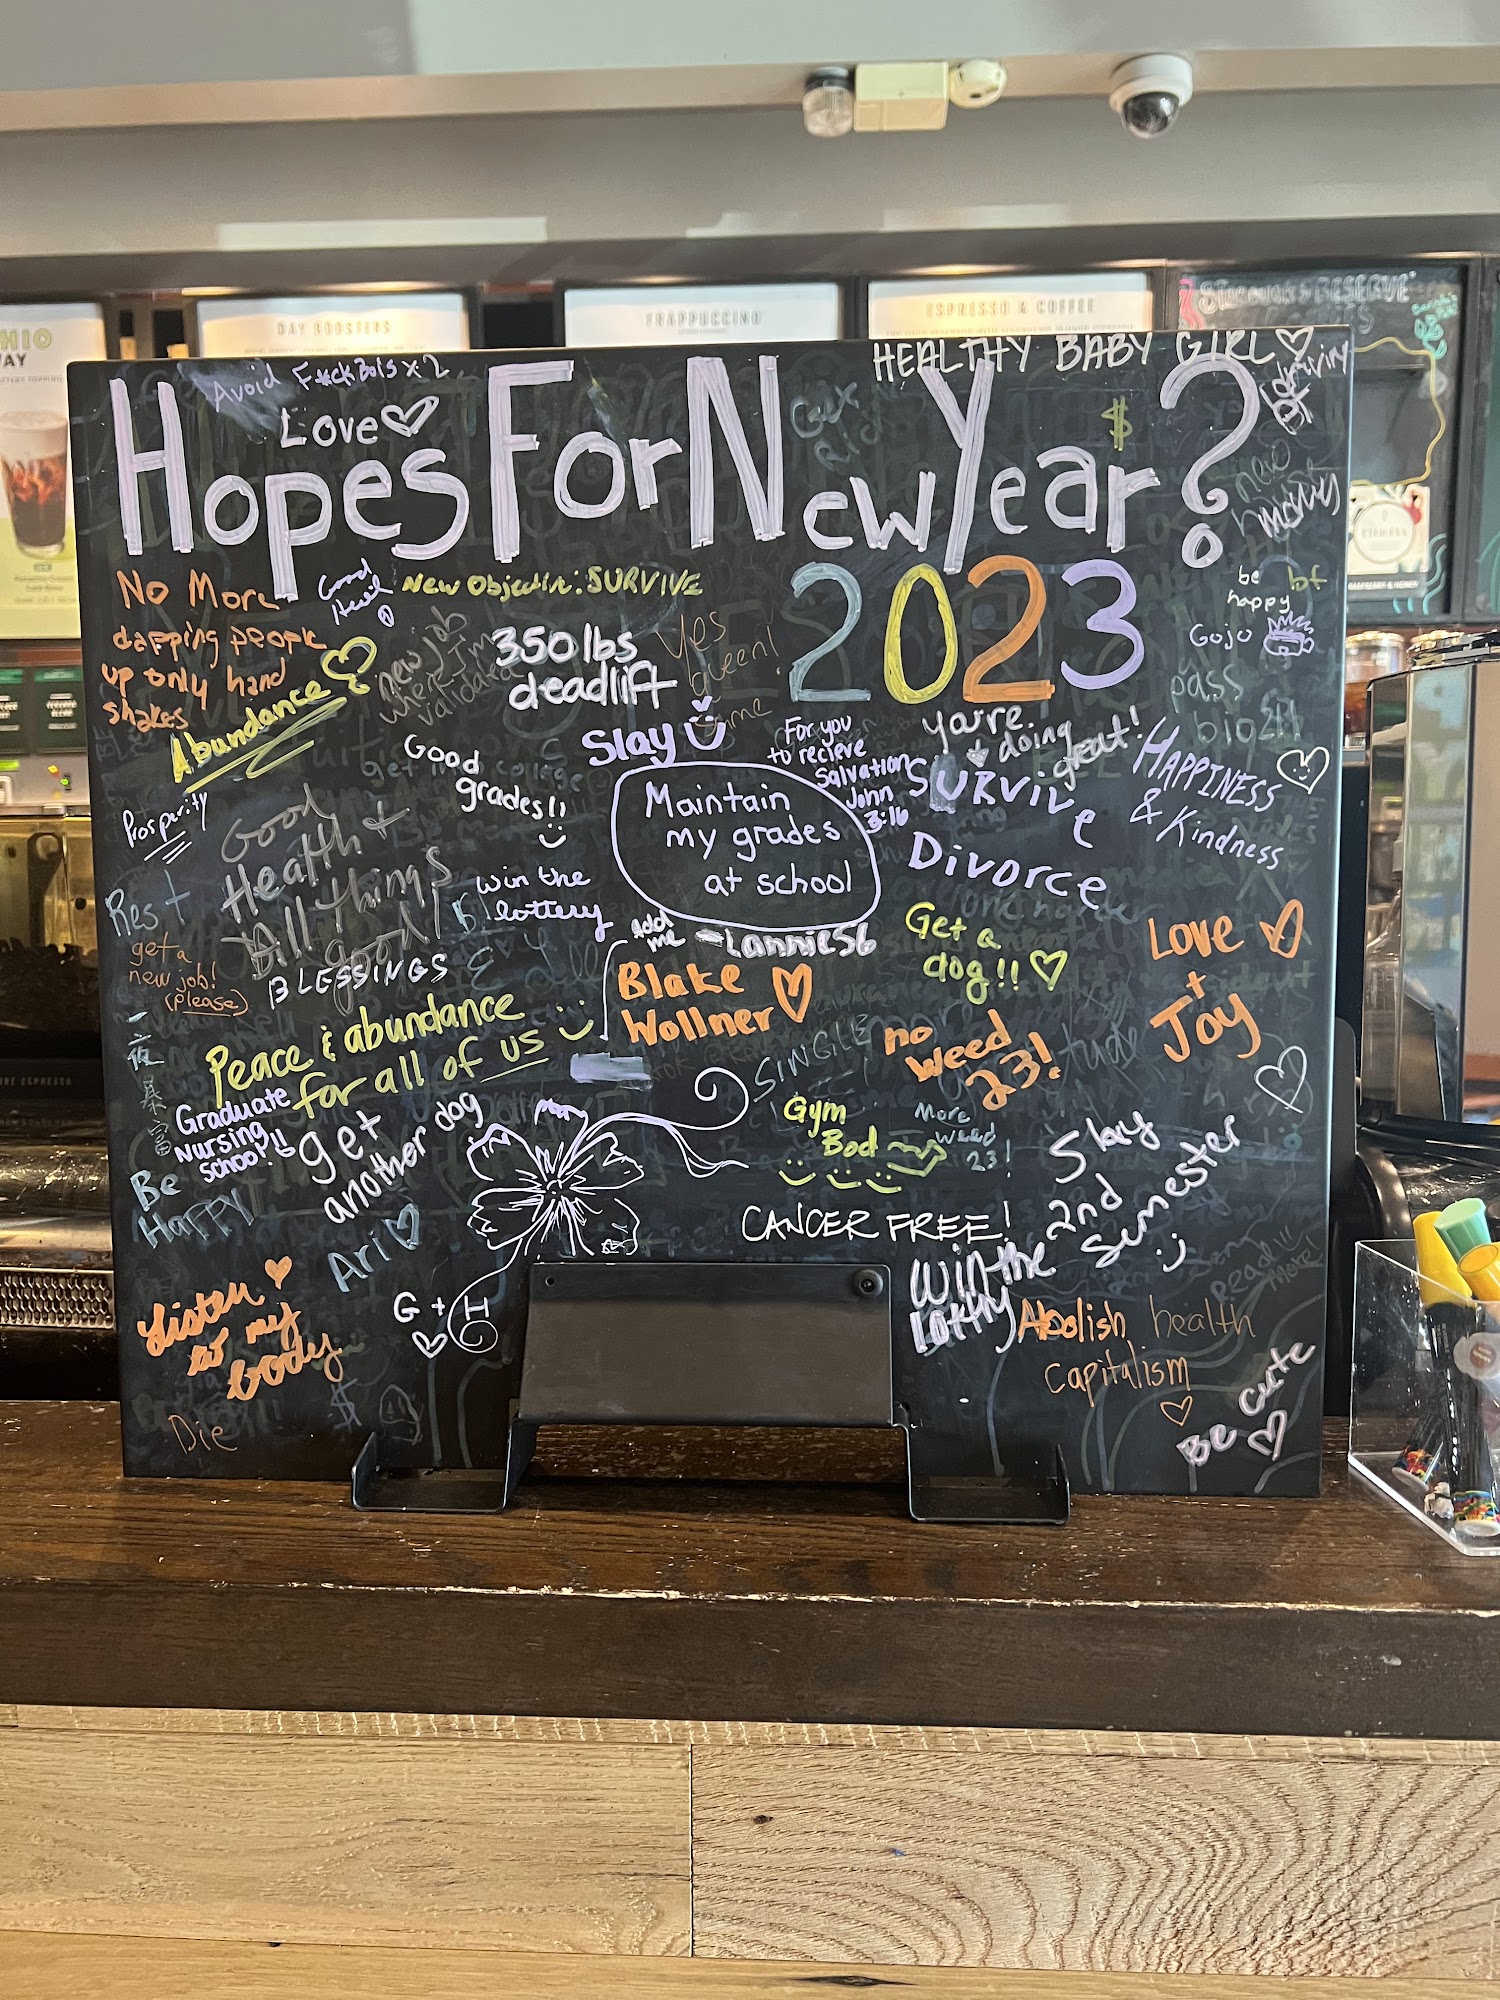 DAY BOOSTERS
FRAPPUCCINO
ESPRESSO & COFFEE
RESERVE
HEALTHY BABY GIRL
Avoid F*ckBois x 2
Love
Hopes For New Year?
2023
$
new
money
No More
dapping people
up only hand
shakes
Good
Health
New Objective: SURVIVE
Abundance
new job
when I'm
validated
350lbs
deadlift
Yes
Queen!
be
happy
bf
Gojo
pass
bio 211
Slay
For you
to recieve
Salvation
John
3:16
you're
doing
great!
SURVive
HAPPINESS
& Kindness
Good
grades!!
Maintain
my grades
at school
Divorce
Prosperity
Good
Health +
All things
good!
win the
lottery
Rest
get a
new job!
(please)
BLESSINGS
Add
me
Lannie56
Blake
Wollner
Get a
dog!!
Love
+
Joy
Peace & abundance
for all of us
一夜暴富
SINGLE
no
weed
23!
Graduate
Nursing
school!!
get
another dog
Gym
Bod
More
weed
23!
Be
Happy
Ari
CANCER FREE!
Slay
2nd
Semester
Listen
to my
body
G + H
Win the
lottry
Read
more
Abolish health
capitalism
Be cute
$
Die